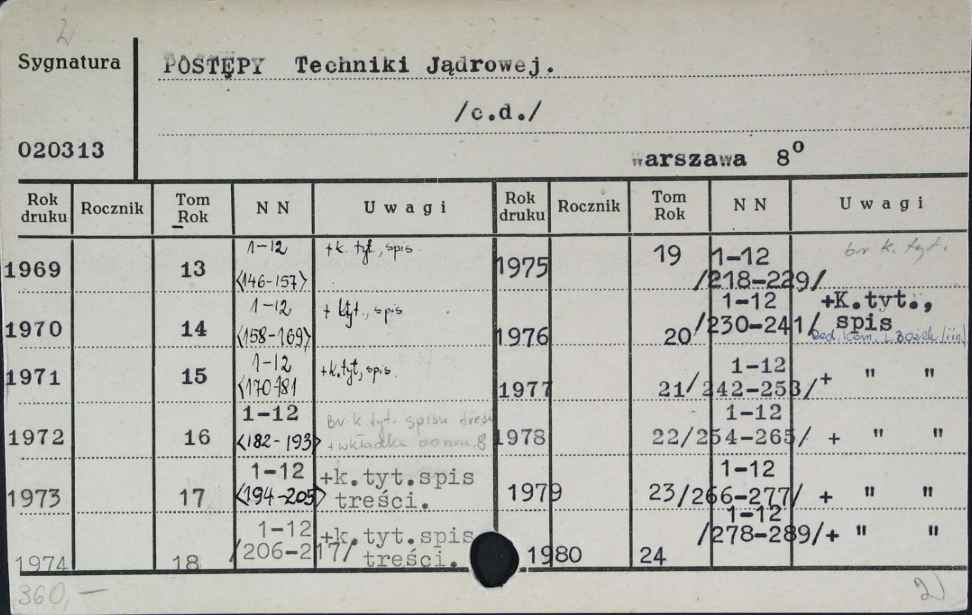 Sygnatura
POSTĘPY Techniki Jądrowej.
/c.d./
020313
Warszawa 8°
Rok druku Rocznik Tom Rok N N Uwagi Rok druku Rocznik Tom Rok N N Uwagi
1969 13 1-12 <146-157> +k. tyt., spis
1970 14 1-12 <158-169> + k.tyt., spis
1971 15 1-12 <170-181 +k.tyt, spis.
1972 16 1-12 <182-193> br k. tyt. spisu treści +wkładka do nru. 8
1973 17 1-12 <194-205> +k.tyt.spis treści.
1974 18 1-12 /206-217/ +k.tyt.spis treści.
1975 19 1-12 /218-229/ br k. tyt.
1976 20 1-12 /230-241/ +K.tyt., spis
1977 21 1-12 /242-253/ + " "
1978 22 1-12 /254-265/ + " "
1979 23 1-12 /266-277/ + " "
1980 24 1-12 /278-289/ + " "
360,—
2)